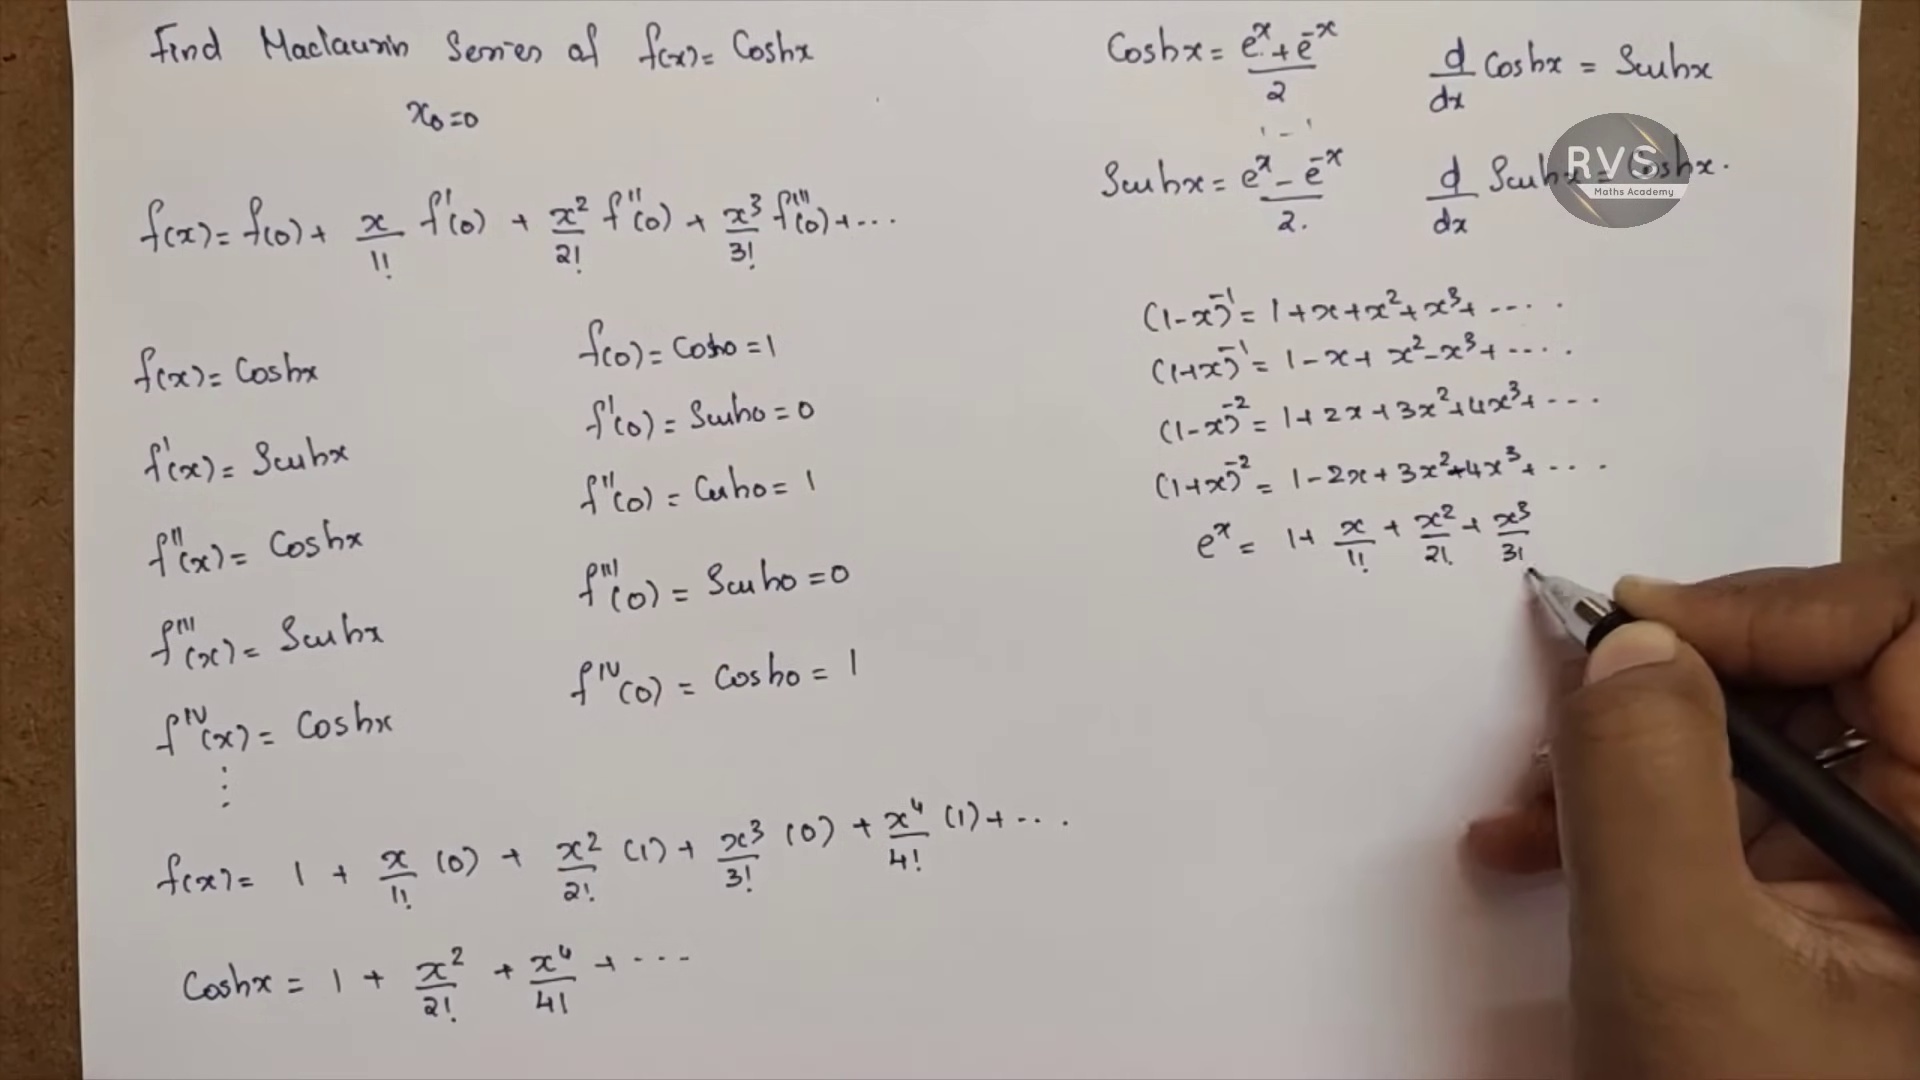 Find Maclaurin Series of f(x) = Coshx
x₀=0
f(x) = f(0) + x/1! f'(0) + x²/2! f''(0) + x³/3! f'''(0) + ...
f(x) = Coshx
f(0) = Cosh0 = 1
f'(x) = Sinhx
f'(0) = Sinh0 = 0
f''(x) = Coshx
f''(0) = Cosh0 = 1
f'''(x) = Sinhx
f'''(0) = Sinh0 = 0
fᴵⱽ(x) = Coshx
fᴵⱽ(0) = Cosh0 = 1
⋮
f(x) = 1 + x/1! (0) + x²/2! (1) + x³/3! (0) + x⁴/4! (1) + ...
Coshx = 1 + x²/2! + x⁴/4! + ...
Coshx = (eˣ + e⁻ˣ)/2
d/dx Coshx = Sinhx
Sinhx = (eˣ - e⁻ˣ)/2.
d/dx Sinhx = Coshx.
RVS
Maths Academy
(1-x)⁻¹ = 1+x+x²+x³+ ....
(1+x)⁻¹ = 1-x+x²-x³+ ....
(1-x)⁻² = 1+2x+3x²+4x³+ ...
(1+x)⁻² = 1-2x+3x²-4x³+ ...
eˣ = 1+ x/1! + x²/2! + x³/3!